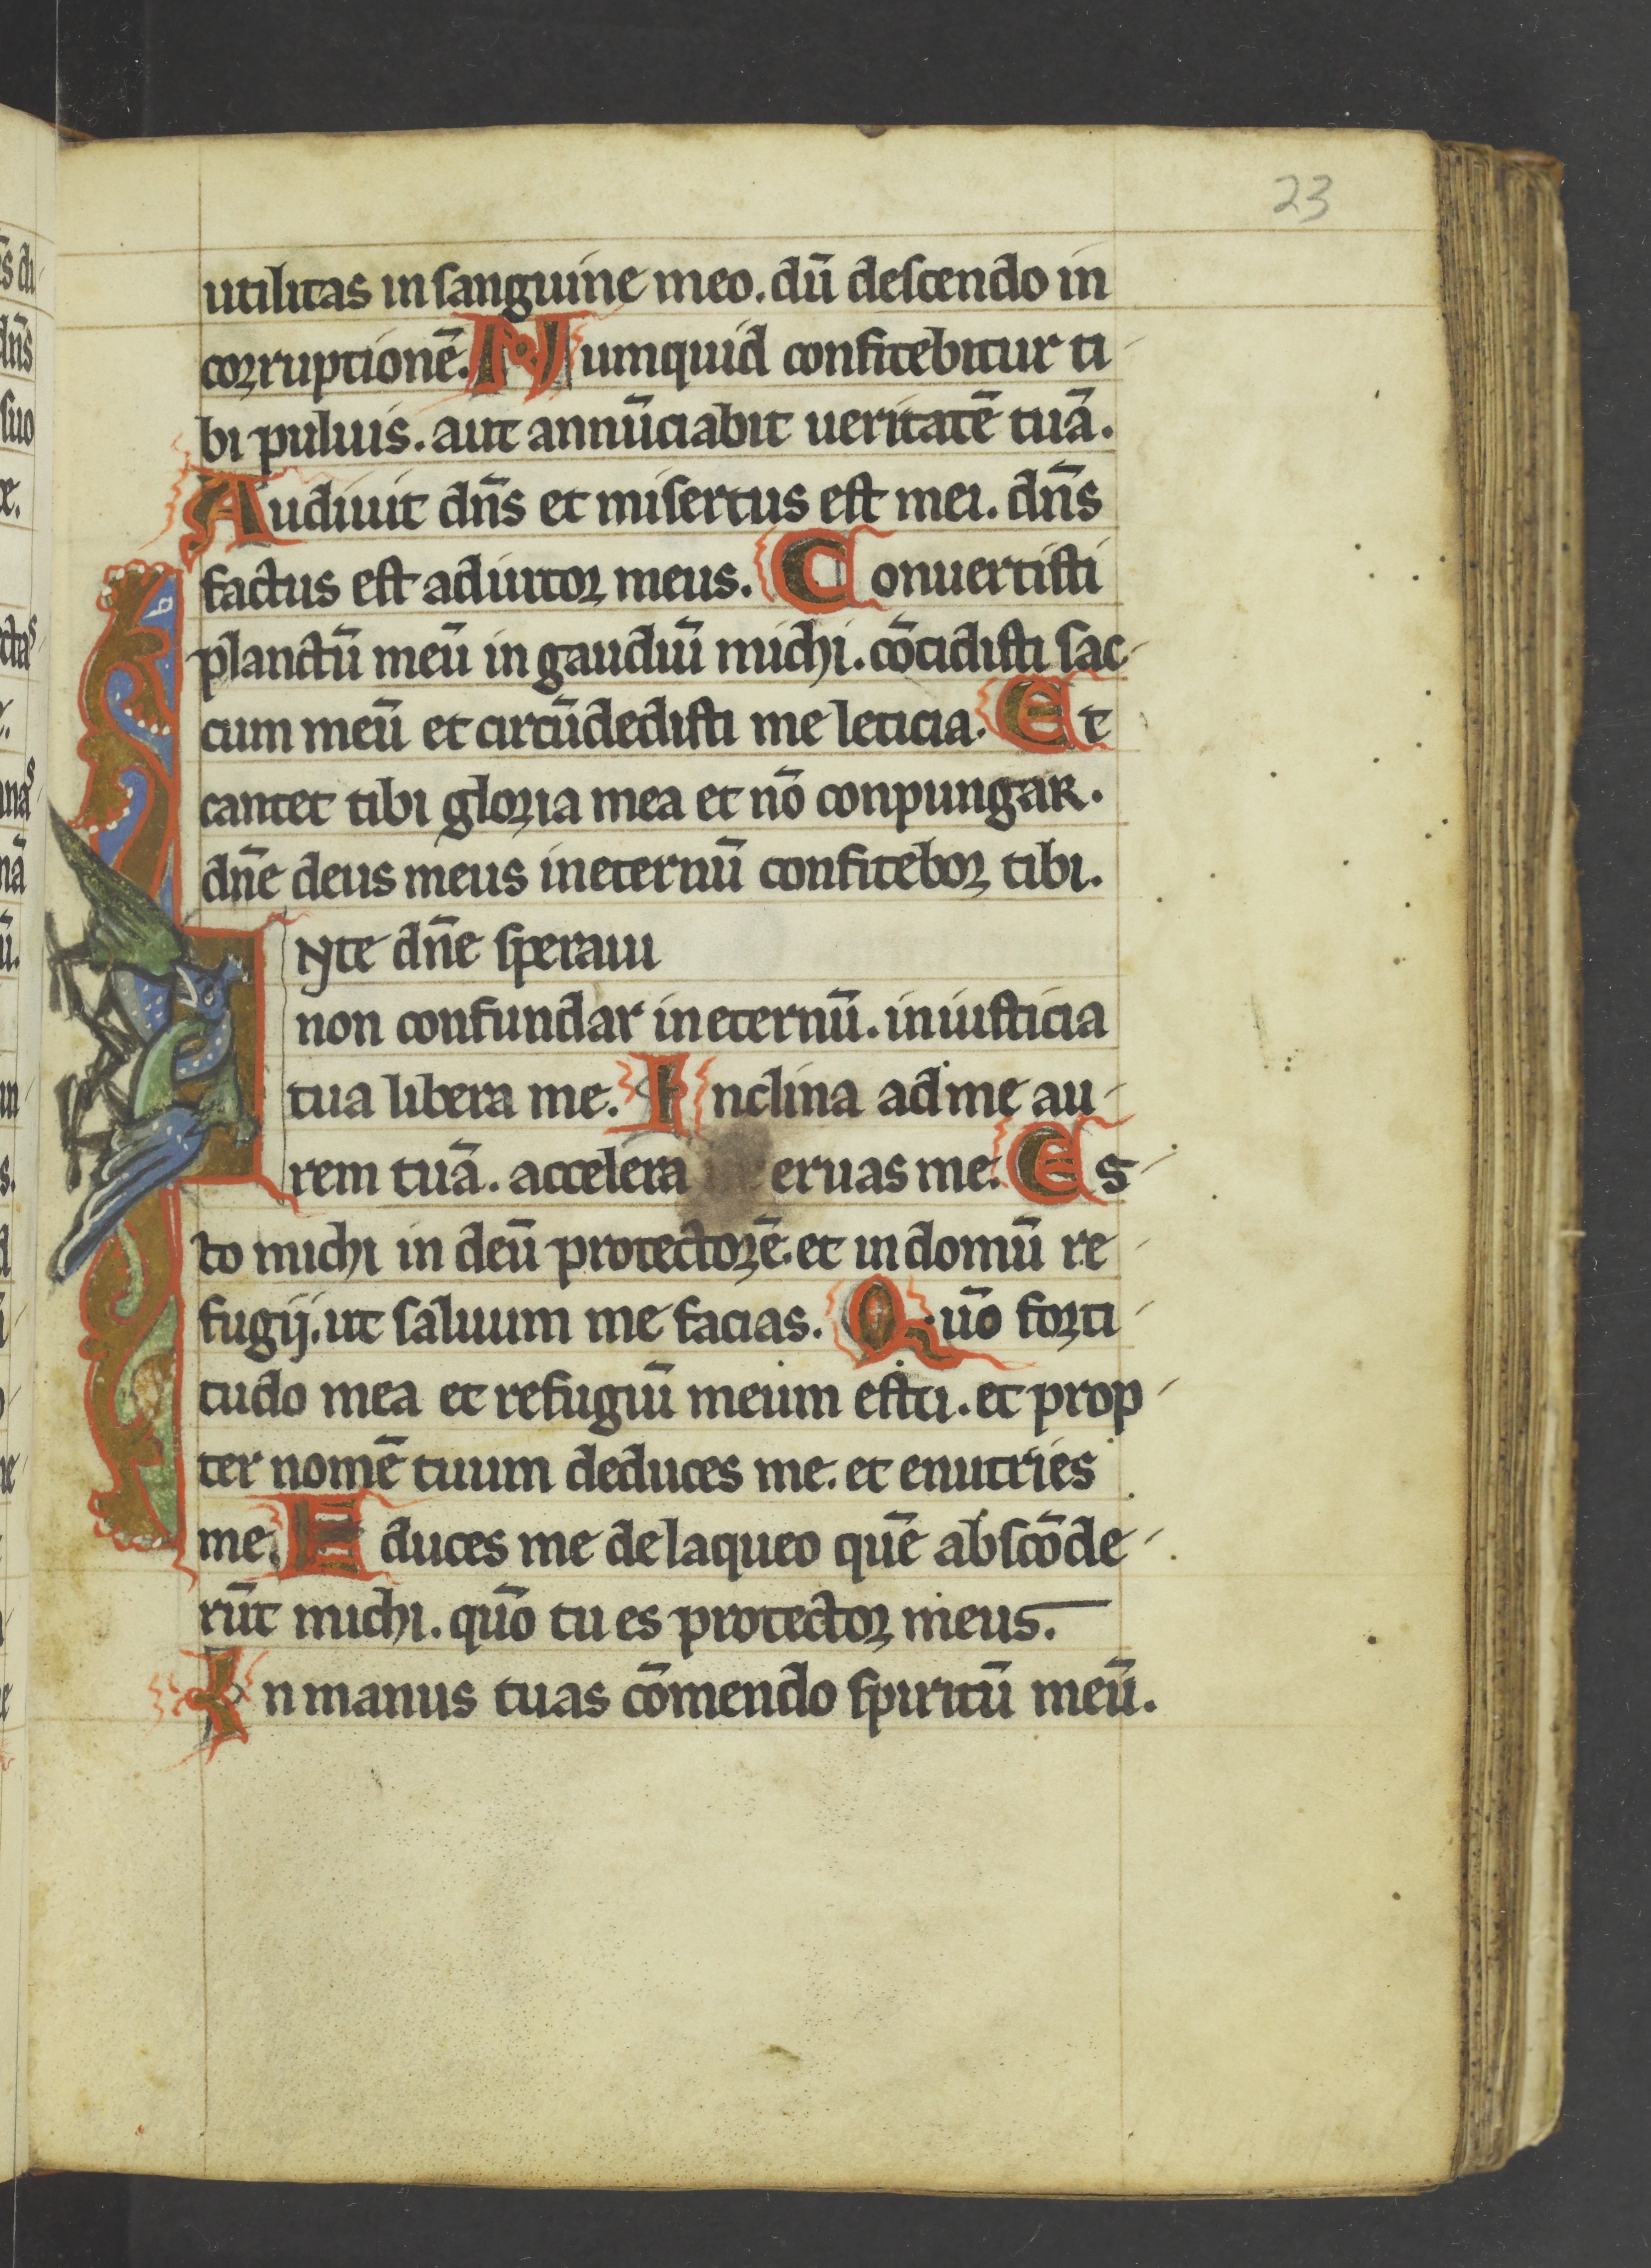 23
utilitas in sanguine meo. dū descendo in
corruptionē. Numquid confitebitur ti-
bi puluis. aut annūciabit ueritatē tuā.
Audiuit dn̄s et misertus est mei. dn̄s
factus est adiutor meus. Conuertisti
planctū meū in gaudiū michi. cōcidisti sac-
cum meū et circūdedisti me leticia. Et
cantet tibi gloria mea et nō conpungar.
dn̄e deus meus in eternū confitebor tibi.
In te dn̄e speraui
non confundar in eternū. in iusticia
tua libera me. Inclina ad me au-
rem tuā. accelera eruas me. Es-
to michi in deū protectorē. et in domū re-
fugij. ut saluum me facias. Quō forti-
tudo mea et refugiū meum es tu. et prop-
ter nomē tuum deduces me. et enutries
me. Educes me de laqueo quē abscōde-
rūt michi. quō tu es protector meus.
In manus tuas cōmendo spiritū meū.